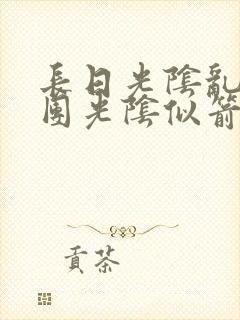 長日光陰亂
園光陰似箭
貢茶